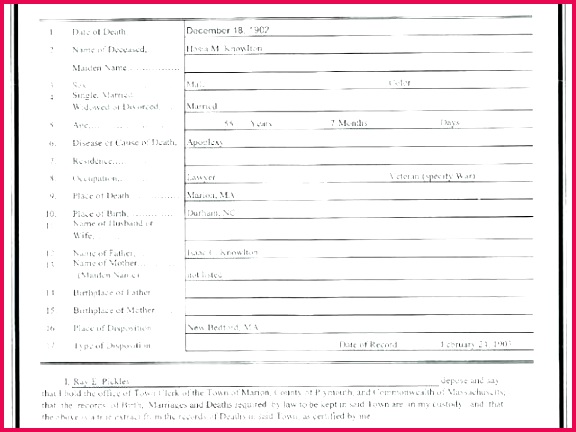 1. Date of Death December 18, 1902
2. Name of Deceased, Hosea M. Knowlton
Maiden Name
3. Sex Male Color
4. Single, Married
Widowed or Divorced Married
5. Age 55 Years 7 Months Days
6. Disease or Cause of Death, Apoplexy
7. Residence
8. Occupation Lawyer Veteran (specify War)
9. Place of Death Marion, MA
10. Place of Birth, Durham,
Name of Husband or
Wife,
12. Name of Father, Isaac C. Knowlton
13. Name of Mother
(Maiden Name) not listed
14. Birthplace of Father
15. Birthplace of Mother
16. Place of Disposition New Bedford, MA
17. Type of Disposition Date of Record February 21,
I, Ray E. Pickles depose and say
that I hold the office of Town Clerk of the Town of Marion, County of Plymouth, and Commonwealth of Massachusetts,
that the records of Birth, Marriages and Deaths required by law to be kept in said Town are in my custody, and that
the above is a true extract from the records of Deaths in said Town, as certified by me.